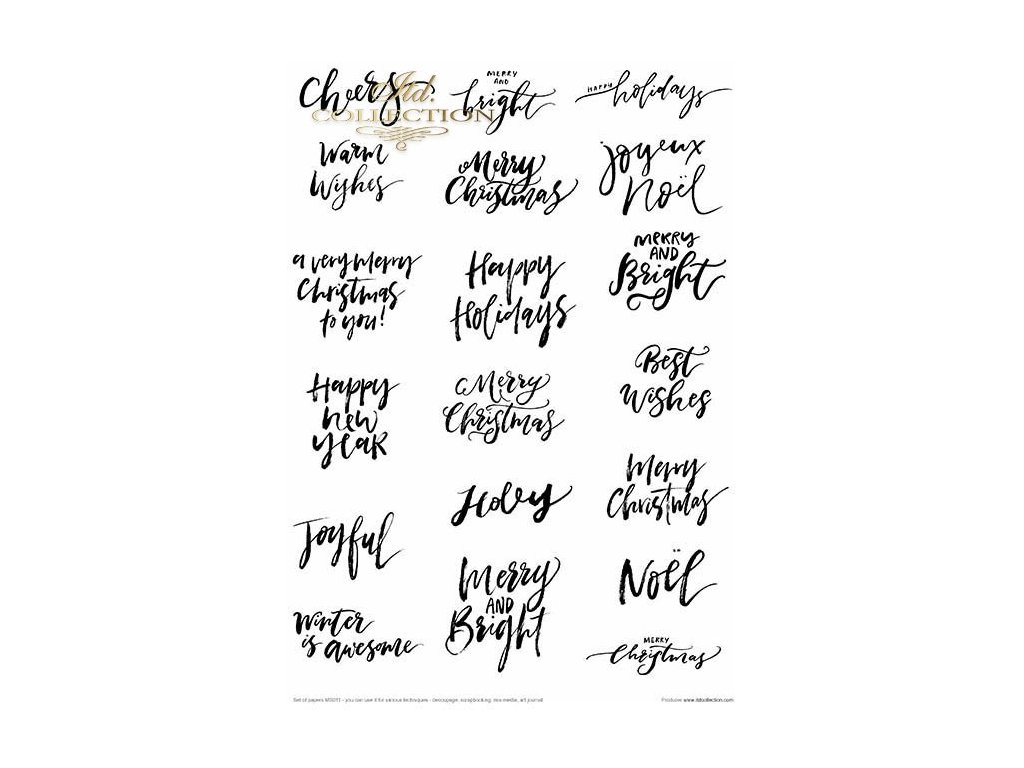 Cheers
Itd.
COLLECTION
MERRY
AND
bright
HAPPY holidays
Warm
Wishes
Merry
Christmas
joyeux
Noël
a very Merry
Christmas
to you!
Happy
Holidays
MERRY
AND
Bright
Happy
New
YEAR
Merry
Christmas
Best
Wishes
Joyful
Holey
Merry
Christmas
Winter
is awesome
Merry
AND
Bright
Noël
MERRY
Christmas
- you can use it for various techniques - decoupage, scrapbooking, mix-media, art journal
Producer www.itdcollection.com